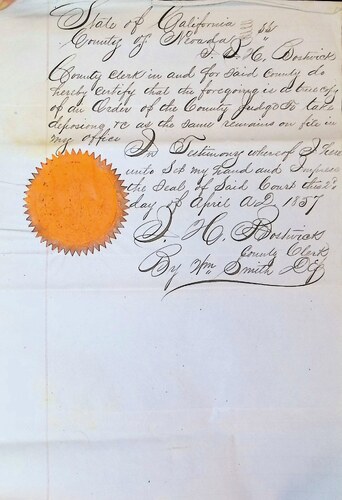 State of California } ss
County of Nevada } "
I. H. Bostwick
County Clerk in and for Said County do
hereby certify that the foregoing is a true copy
of an Order of the County Judge to take
deposions &c as the same remains on file in
my office
In Testimony whereof I here
unto Set my hand and impress
the Seal of Said Court this
day of April AD 1857
H. Bostwick
County Clerk
By Wm Smith